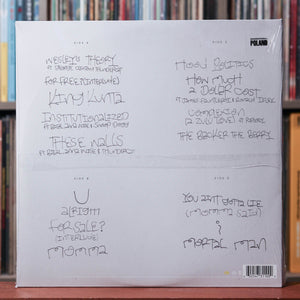 SIDE A
WESLEY'S THEORY
FT GEORGE CLINTON & THUNDERCAT
FOR FREE? (INTERLUDE)
KING KUNTA
INSTITUTIONALIZED
FT BILAL, ANNA WISE & SNOOP DOGG
THESE WALLS
FT BILAL, ANNA WISE & THUNDERCAT
SIDE B
U
ALRIGHT
FOR SALE?
(INTERLUDE)
MOMMA
SIDE C
HOOD POLITICS
HOW MUCH
A DOLLAR COST
FT JAMES FAUNTLEROY & RONALD ISLEY
COMPLEXION
(A ZULU LOVE) FT RAPSODY
THE BLACKER THE BERRY
SIDE D
YOU AINT GOTTA LIE
(MOMMA SAID)
i
MORTAL MAN
POLAND